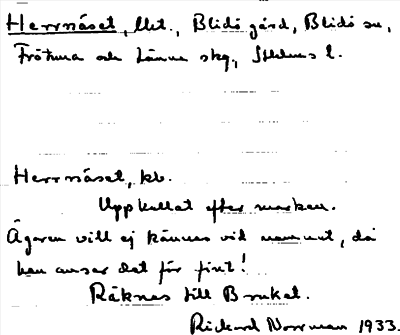 Herrnäset, lht., Blidö gård, Blidö sn,
Frötuna och Länna skg, Sthlms l.
Herrnäset, kb.
Uppkallat efter marken.
Ägaren vill ej kännas vid namnet, då
han anser det för fint!
Räknas till Bruket.
Rickard Norrman 1933.